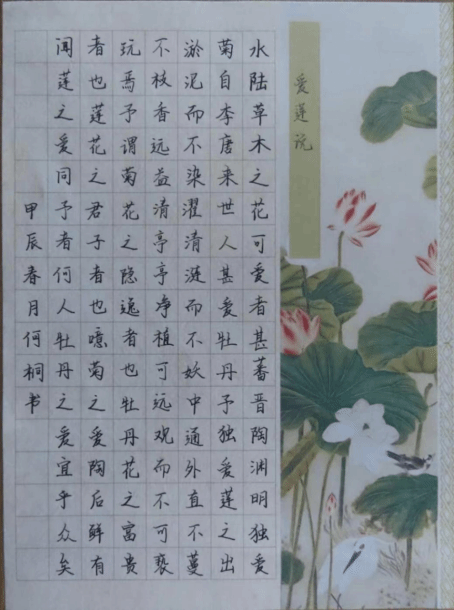 爱莲说
水陆草木之花可爱者甚蕃晋陶渊明独爱
菊自李唐来世人甚爱牡丹予独爱莲之出
淤泥而不染濯清涟而不妖中通外直不蔓
不枝香远益清亭亭净植可远观而不可亵
玩焉予谓菊花之隐逸者也牡丹花之富贵
者也莲花之君子者也噫菊之爱陶后鲜有
闻莲之爱同予者何人牡丹之爱宜乎众矣
甲辰春月何桐书